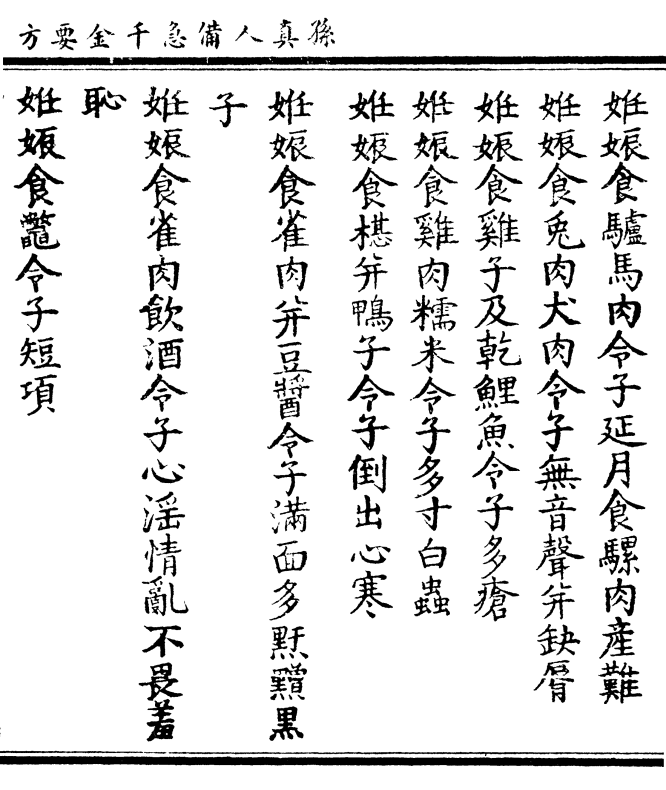 孫真人備急千金要方
姙娠食驢馬肉令子延月食騾肉產難
姙娠食兎肉犬肉令子無音聲并缺脣
姙娠食雞子及乾鯉魚令子多瘡
姙娠食雞肉糯米令子多寸白蟲
姙娠食椹并鴨子令子倒出心寒
姙娠食雀肉并豆醬令子滿面多䵟黷黑
子
姙娠食雀肉飲酒令子心淫情亂不畏羞
恥
姙娠食鼈令子短項